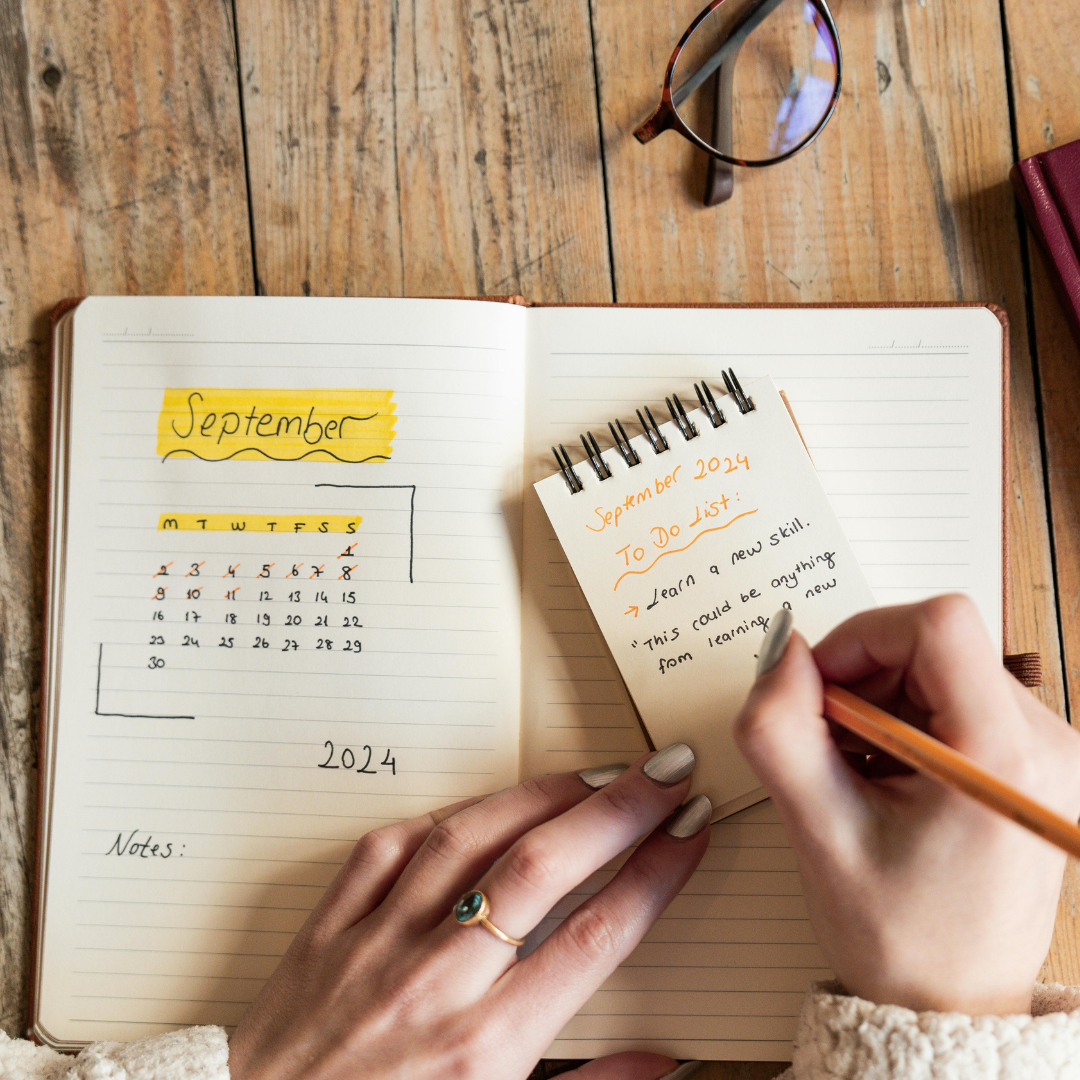 September
M T W T F S S
1
2 3 4 5 6 7 8
9 10 11 12 13 14 15
16 17 18 19 20 21 22
23 24 25 26 27 28 29
30
2024
Notes:
September 2024
To Do List:
→ Learn a new skill.
"This could be anything
from learning a new